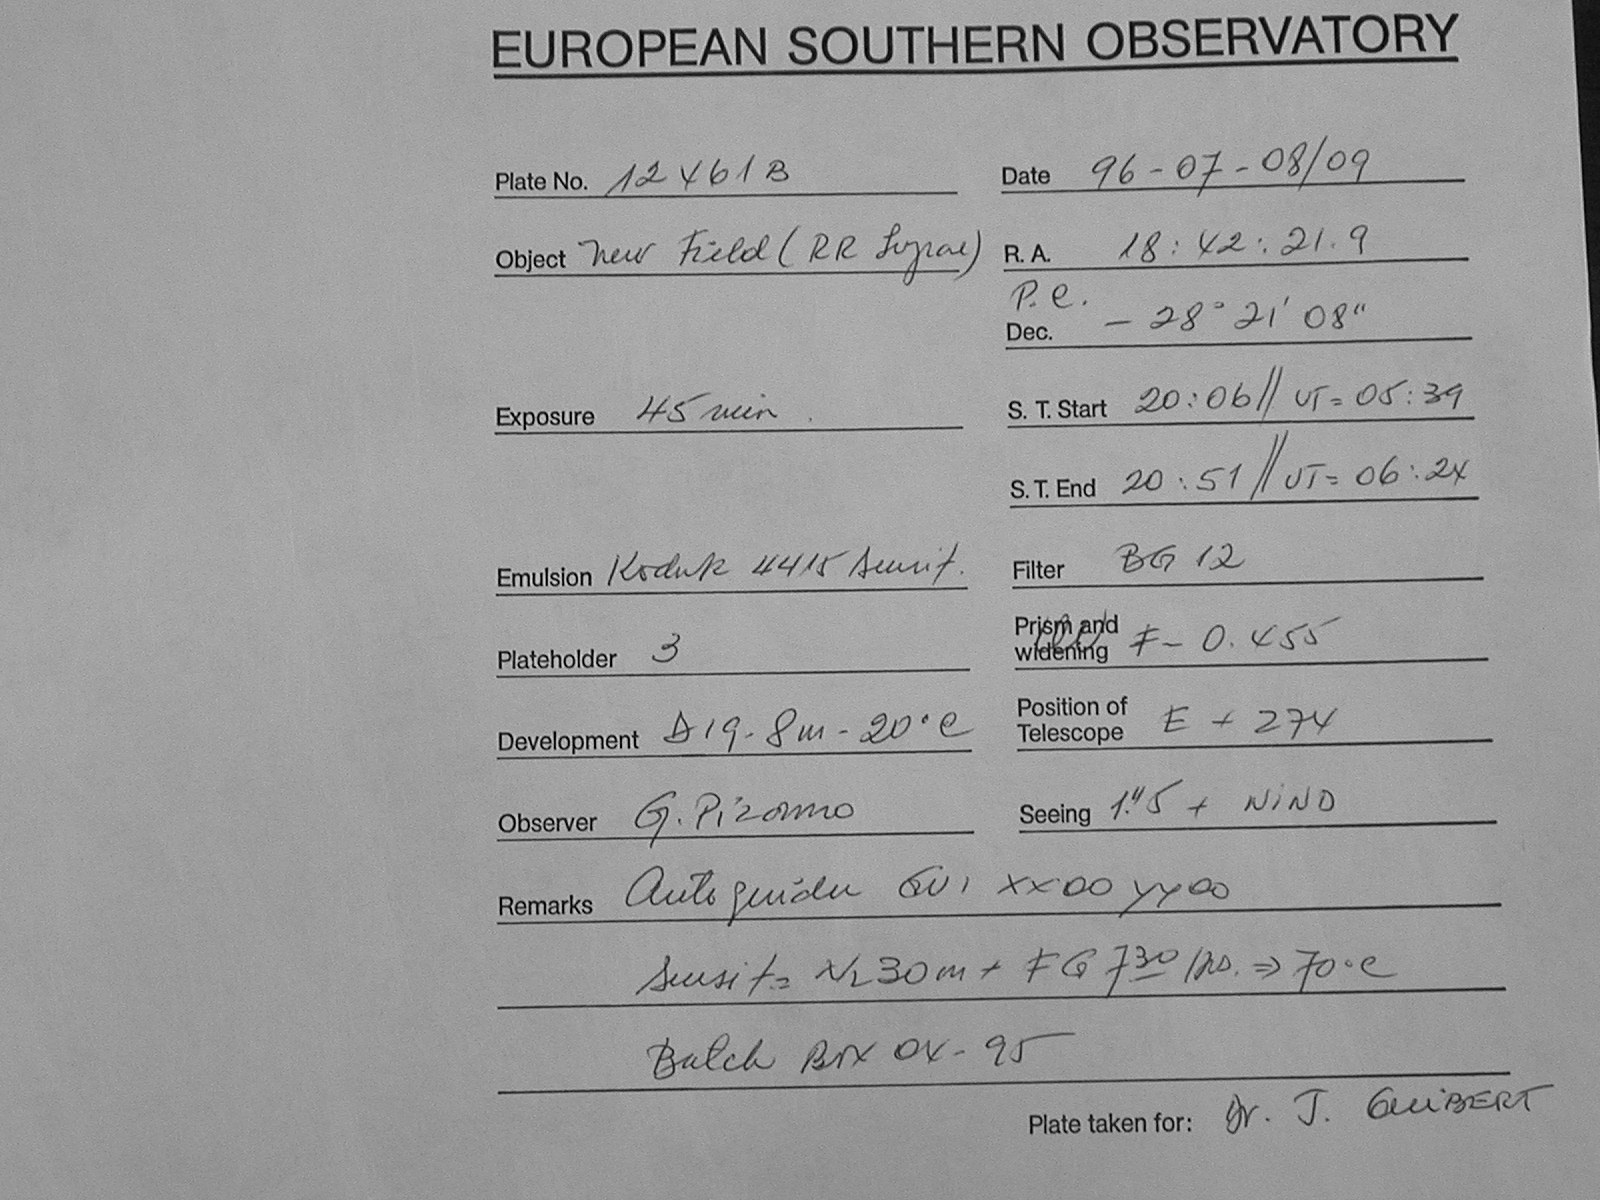 EUROPEAN SOUTHERN OBSERVATORY
Plate No. 12461B
Date 96-07-08/09
Object New Field (RR Lyrae)
R. A. 18:42:21.9
P.e.
Dec. - 28° 21' 08"
Exposure 45 min.
S. T. Start 20:06 // UT= 05:39
S. T. End 20:51 // UT= 06:24
Emulsion Kodak 4415 Sensit.
Filter BG 12
Plateholder 3
Prism and widening F- 0.455
Development D19-8m-20°C
Position of Telescope E + 274
Observer G. Pizarro
Seeing 1."5 + NiNO
Remarks Autoguider GV1 XX00 YY00
Sensit= N2 30m + FG 7 30 /hs. ⇒ 70°C
Batch Box 04-95
Plate taken for: Dr. J. GUiBERT